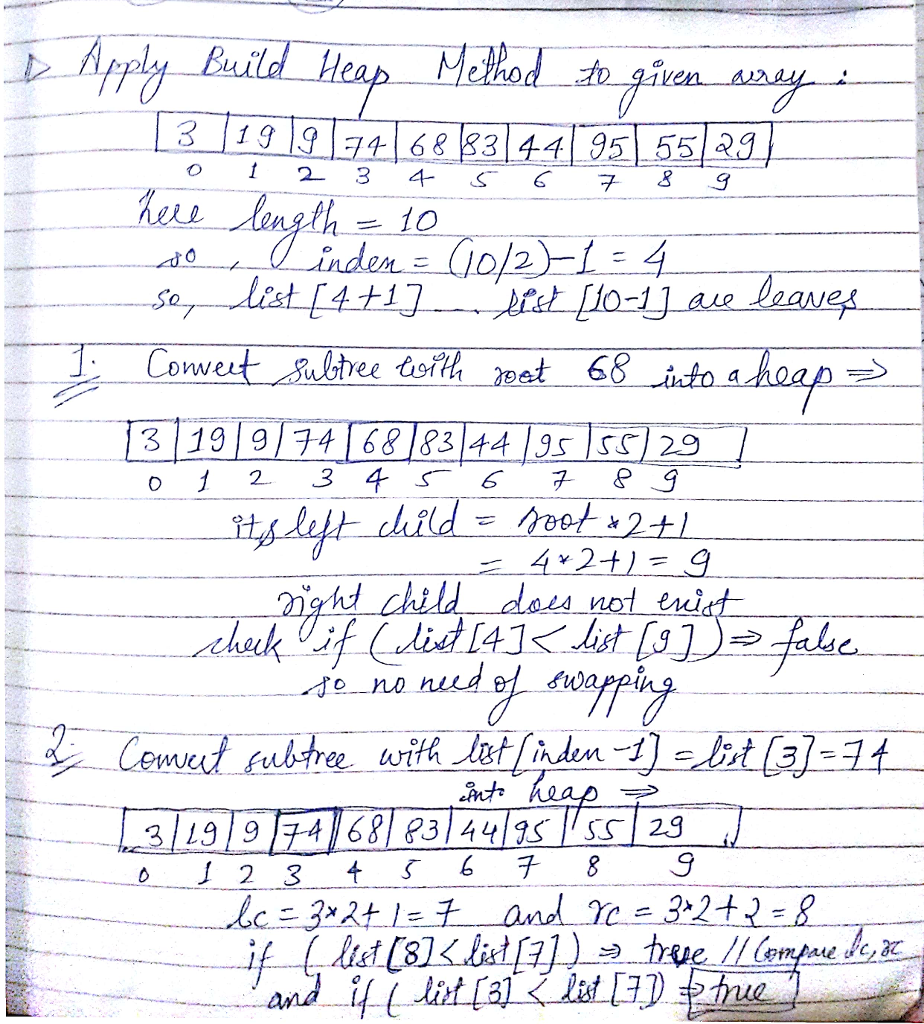 ▷ Apply Build Heap Method to given array :
3 | 19 | 9 | 74 | 68 | 83 | 44 | 95 | 55 | 29
0 1 2 3 4 5 6 7 8 9
here length = 10
so, index = (10/2)-1 = 4
so, list [4+1] ... list [10-1] are leaves
1. Convert subtree with root 68 into a heap ⇒
3 | 19 | 9 | 74 | 68 | 83 | 44 | 95 | 55 | 29
0 1 2 3 4 5 6 7 8 9
its left child = root * 2 + 1
= 4*2+1 = 9
right child does not exist
check if (list [4] < list [9]) ⇒ false
so no need of swapping
2. Convert subtree with list [index -1] = list [3] = 74
into heap ⇒
3 | 19 | 9 | 74 | 68 | 83 | 44 | 95 | 55 | 29
0 1 2 3 4 5 6 7 8 9
lc = 3*2+1 = 7 and rc = 3*2+2 = 8
if ( list [8] < list [7] ) ⇒ true // Compare lc, rc
and if ( list [3] < list [7]) ⇒ true